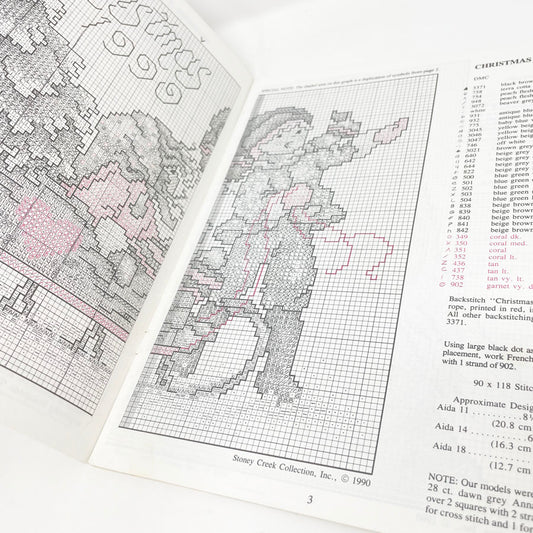 SPECIAL NOTE: The shaded area on this graph is a duplication of symbols from page 2.
Stoney Creek Collection, Inc., © 1990
3
CHRISTMAS
DMC
3371 black brow
758 terra cotta
754 peach flesh
948 peach flesh
3072 beaver grey
white
931 antique blu
932 antique blu
775 baby blue
3045 yellow beig
3046 yellow beig
3047 yellow beig
746 off white
3021 brown grey
640 beige grey
642 beige grey
644 beige grey
822 beige grey
500 blue green
501 blue green
502 blue green
503 blue green
504 blue green
838 beige brown
839 beige brown
840 beige brown
841 beige brown
842 beige brown
349 coral dk.
350 coral med.
351 coral
352 coral lt.
436 tan
437 tan lt.
738 tan vy. lt.
902 garnet vy. d
Backstitch "Christmas
rope, printed in red, i
All other backstitching
3371.
Using large black dot as
placement, work French
with 1 strand of 902.
90 x 118 Stitc
Approximate Desig
Aida 11 . . . . . . . . . . 8½
(20.8 cm
Aida 14 . . . . . . . . . . 6
(16.3 cm
Aida 18 . . . . . . . . . .
(12.7 cm
NOTE: Our models were
28 ct. dawn grey Anna
over 2 squares with 2 str
for cross stitch and 1 for